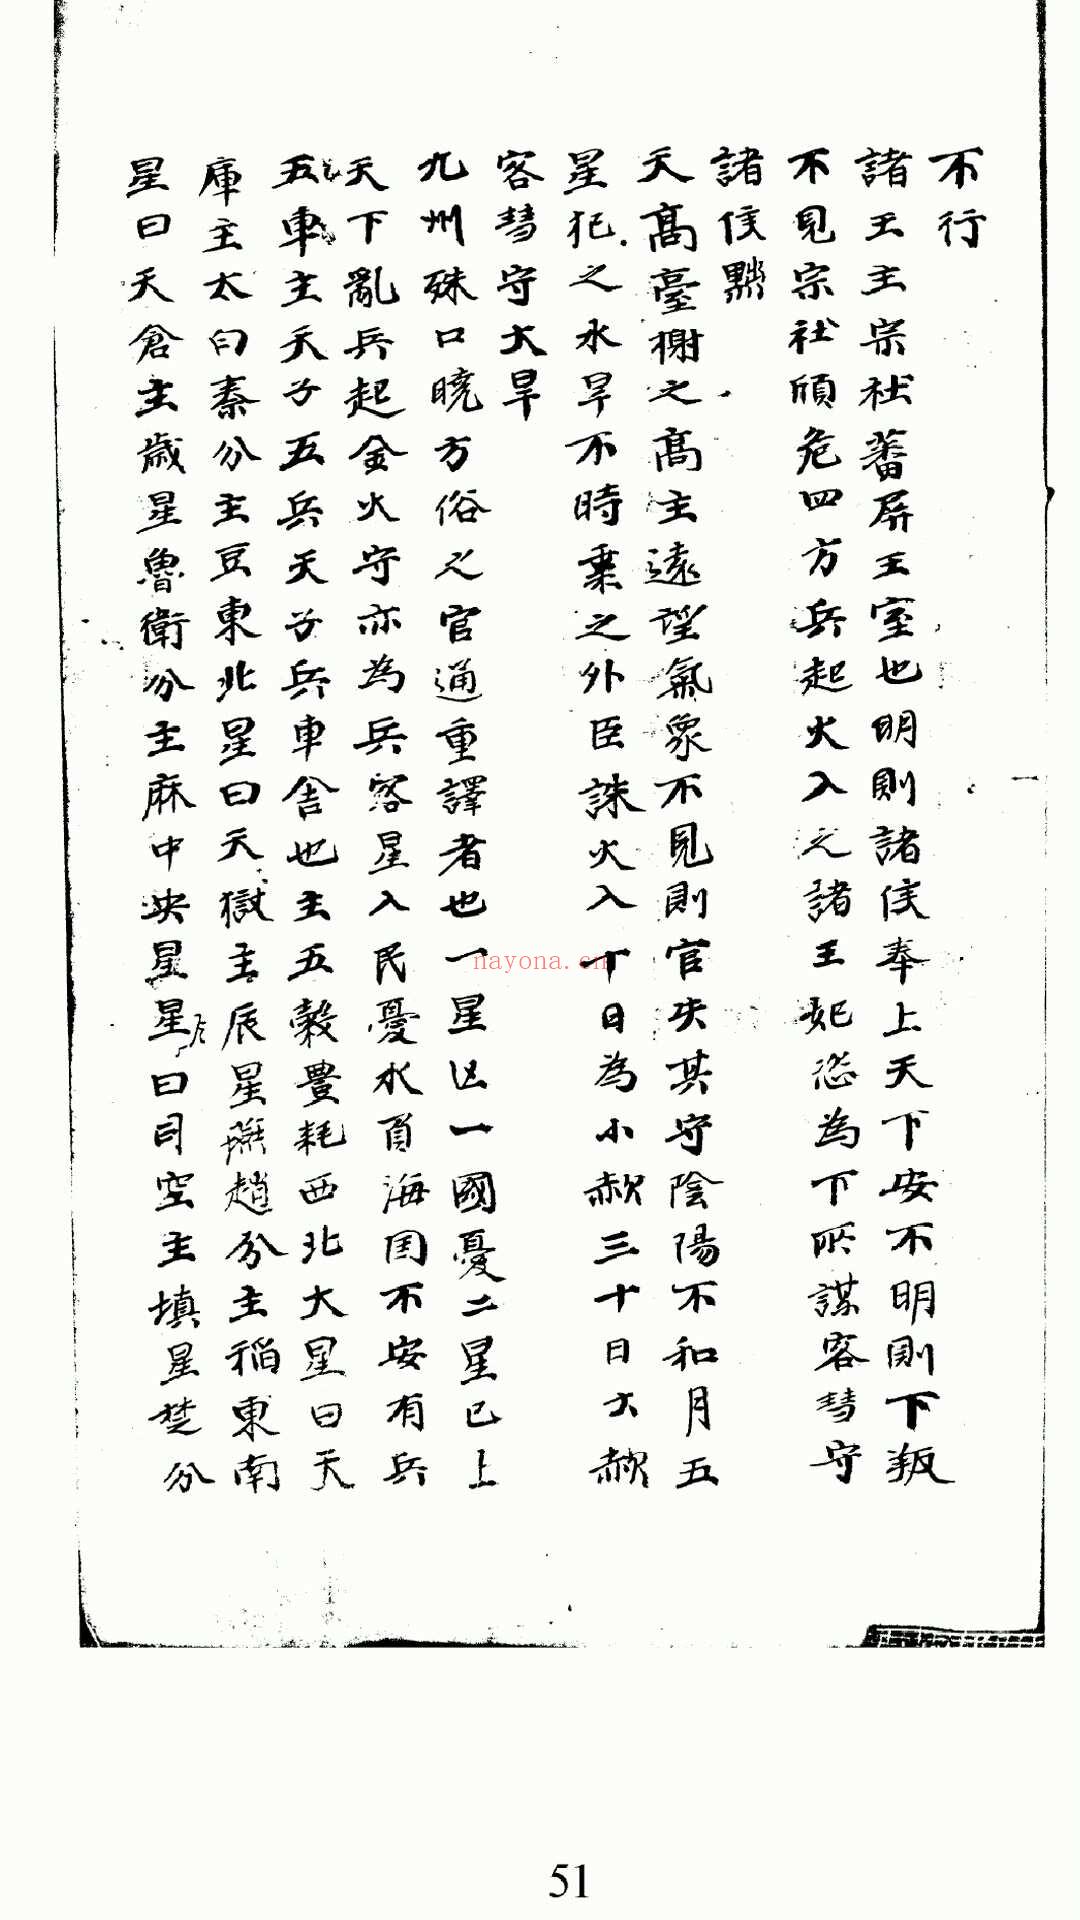 不行
諸王主宗社蕃屏王室也明則諸侯奉上天下安不明則下叛
不見宗社傾危四方兵起火入之諸王妃恣為下所謀客彗守
諸侯黜
天高臺榭之高主遠望氣象不見則官失其守陰陽不和月五
星犯之水旱不時乘之外臣誅火入一丁日為小赦三十日大赦
客彗守大旱
九州殊口曉方俗之官通重譯者也一星凶一國憂二星已上
天下亂兵起金火守亦為兵客星入民憂水負海國不安有兵
五車主天子五兵天子兵車舍也主五穀豐耗西北大星曰天
庫主太白秦分主豆東北星曰天獄主辰星燕趙分主稻東南
星曰天倉主歲星魯衛分主麻中央星星曰司空主填星楚分
nayona.cn
51